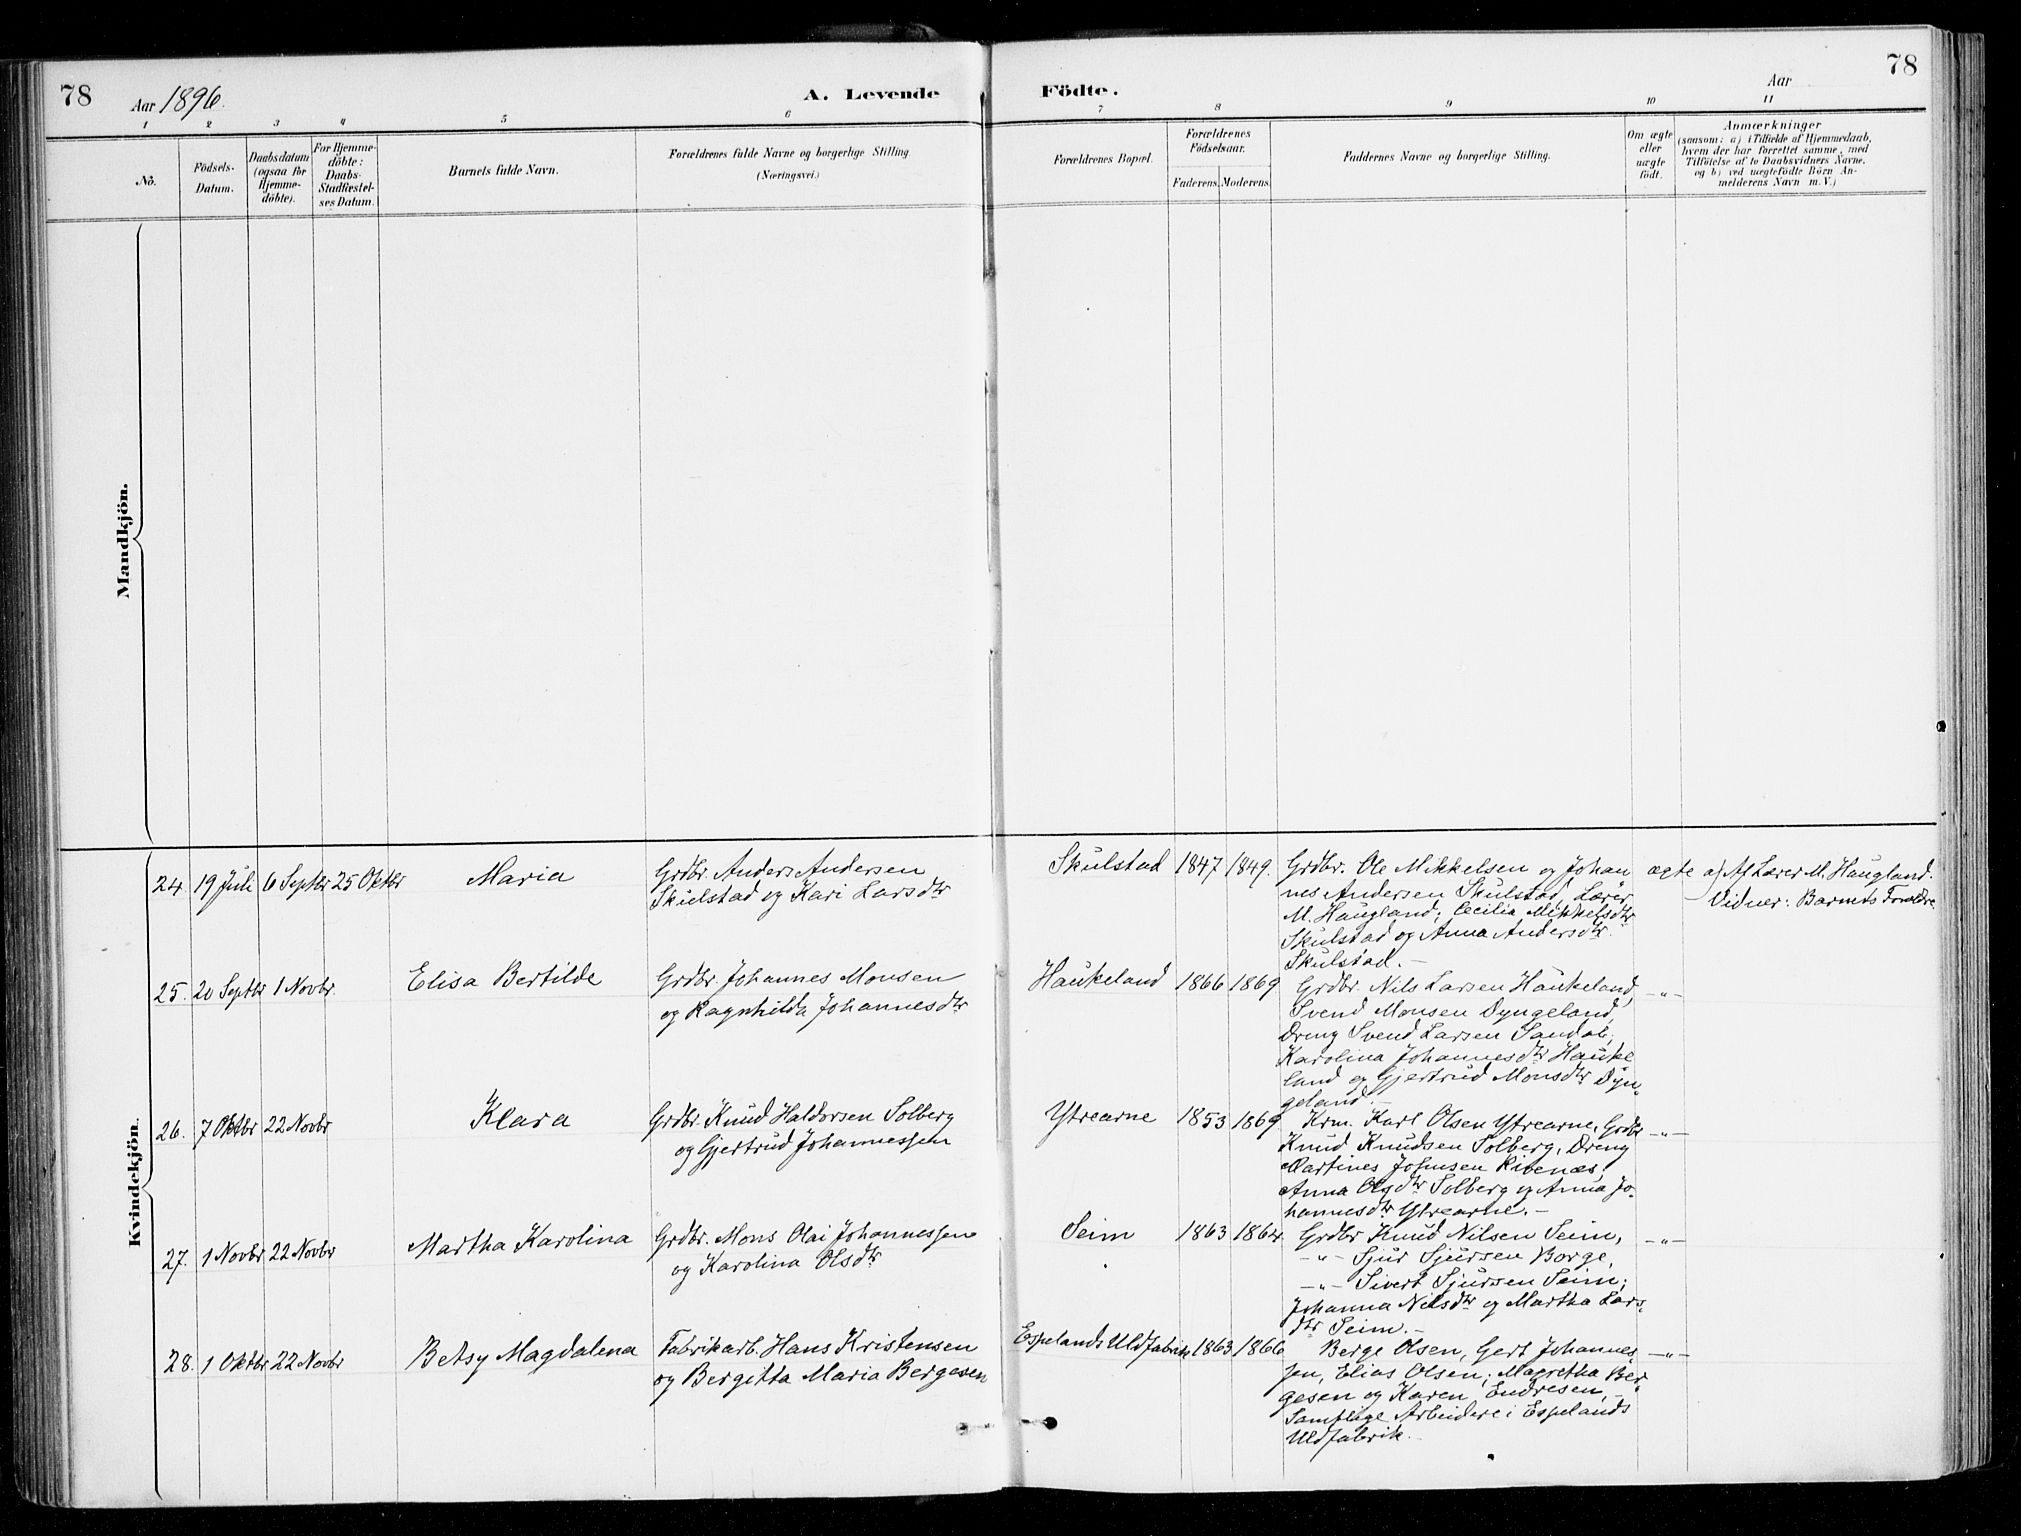 78
Aar 1896.
A. Levende
Födte.
Aar
78
1
2
3
4
5
6
7
8
9
10
11
No.
Födsels-
Datum.
Daabsdatum
(ogsaa for
Hjemme-
döbte).
For Hjemme-
döbte:
Daabs-
Stadfæstel-
ses Datum.
Barnets fulde Navn.
Forældrenes fulde Navne og borgerlige Stilling
(Næringsvei.)
Forældrenes Bopæl.
Forældrenes
Födselsaar.
Faderens.
Moderens.
Faddernes Navne og borgerlige Stilling.
Om ægte
eller
uægte
födt.
Anmærkninger
(saasom: a) i Tilfælde af Hjemmedaab,
hvem der har forrettet samme, med
Tilföielse af to Daabsvidners Navne,
og b) ved uægtefödte Börn An-
melderens Navn m. V.)
Mandkjön.
Kvindekjön.
24. 19 Juli 6 Septbr 25 Oktbr
Maria
Grdbr. Anders Andersen
Skulstad og Kari Larsdtr
Skulstad
1847 1849.
Grdbr. Ole Mikkelsen og Johan
nes Andersen Skulstad, Lærer
M. Haugland; Cecilia Mikkelsdtr
Skulstad og Anna Andersdtr.
Skulstad. –
ægte
a) Af Lærer M. Haugland.
Vidner: Barnets Forældre
25. 20 Septbr 1 Novbr.
Elisa Bertilde
Grdbr. Johannes Monsen
og Ragnhilda Johannesdtr
Haukeland
1866 1869
Grdbr. Nils Larsen Haukeland,
Svend Monsen Dyngeland,
Dreng Svend Larsen Sandal;
Karolina Johannesdtr Hauke
land og Gjertrud Monsdtr Dyn-
geland. –
–"–
26. 7 Oktbr 22 Novbr
Klara
Grdbr. Knud Haldorsen Solberg
og Gjertrud Johannessen
Ytrearne
1853 1869
Krm. Karl Olsen Ytrearne, Grdbr
Knud Knudsen Solberg, Dreng
Martines Johnsen Rivenæs;
Anna Olsdtr Solberg og Anna Jo-
hannesdtr Ytrearne. –
–"–
27. 1 Novbr 22 Novbr
Martha Karolina
Grdbr. Mons Olai Johannessen
og Karolina Olsdtr
Seim
1863 1864.
Grdbr Knud Nilsen Seim,
–"– Sjur Sjursen Borge,
–"– Sivert Sjursen Seim;
Johanna Nilsdtr og Martha Lars-
dtr Seim. –
–"–
28. 1 Oktbr 22 Novbr
Betsy Magdalena
Fabrikarb. Hans Kristensen
og Bergitta Maria Bergesen
Espelands Uldfabrik
1863 1866
Berge Olsen, Gert Johannes-
sen, Elias Olsen; Magretha Ber-
gesen og Karen Endresen, –
Samtlige Arbeidere i Espelands
Uldfabrik. –
–"–